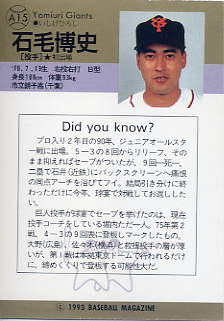 A15
Yomiuri Giants
●いしげひろし
石毛博史
【投手】★初出場
'70.7.13生 右投右打 B型
身長186cm 体重93kg
市立銚子高(千葉)
Did you know?
プロ入り2年目の90年、ジュニアオールスタ
ー戦に出場。5―3の8回からリリーフ、その
まま抑えればセーブがついたが、9回一死一、
二塁で石井(近鉄)にバックスクリーンへ痛恨
の同点アーチを浴びてフイ。結局引き分けに終
わっただけに今年、球宴で対戦してお返しした
い。
巨人投手が球宴でセーブを挙げたのは、現在
投手コーチをしている堀内だ一人。75年第2
戦、4―3の9回表に登板しマークしたもの。
大野(広島)、佐々木(横浜)と救援投手の層が厚
いが、第1戦は本拠東京ドームで行われるだけ
に、締めくくりで登板する可能性大だ。
© 1993 BASEBALL MAGAZINE